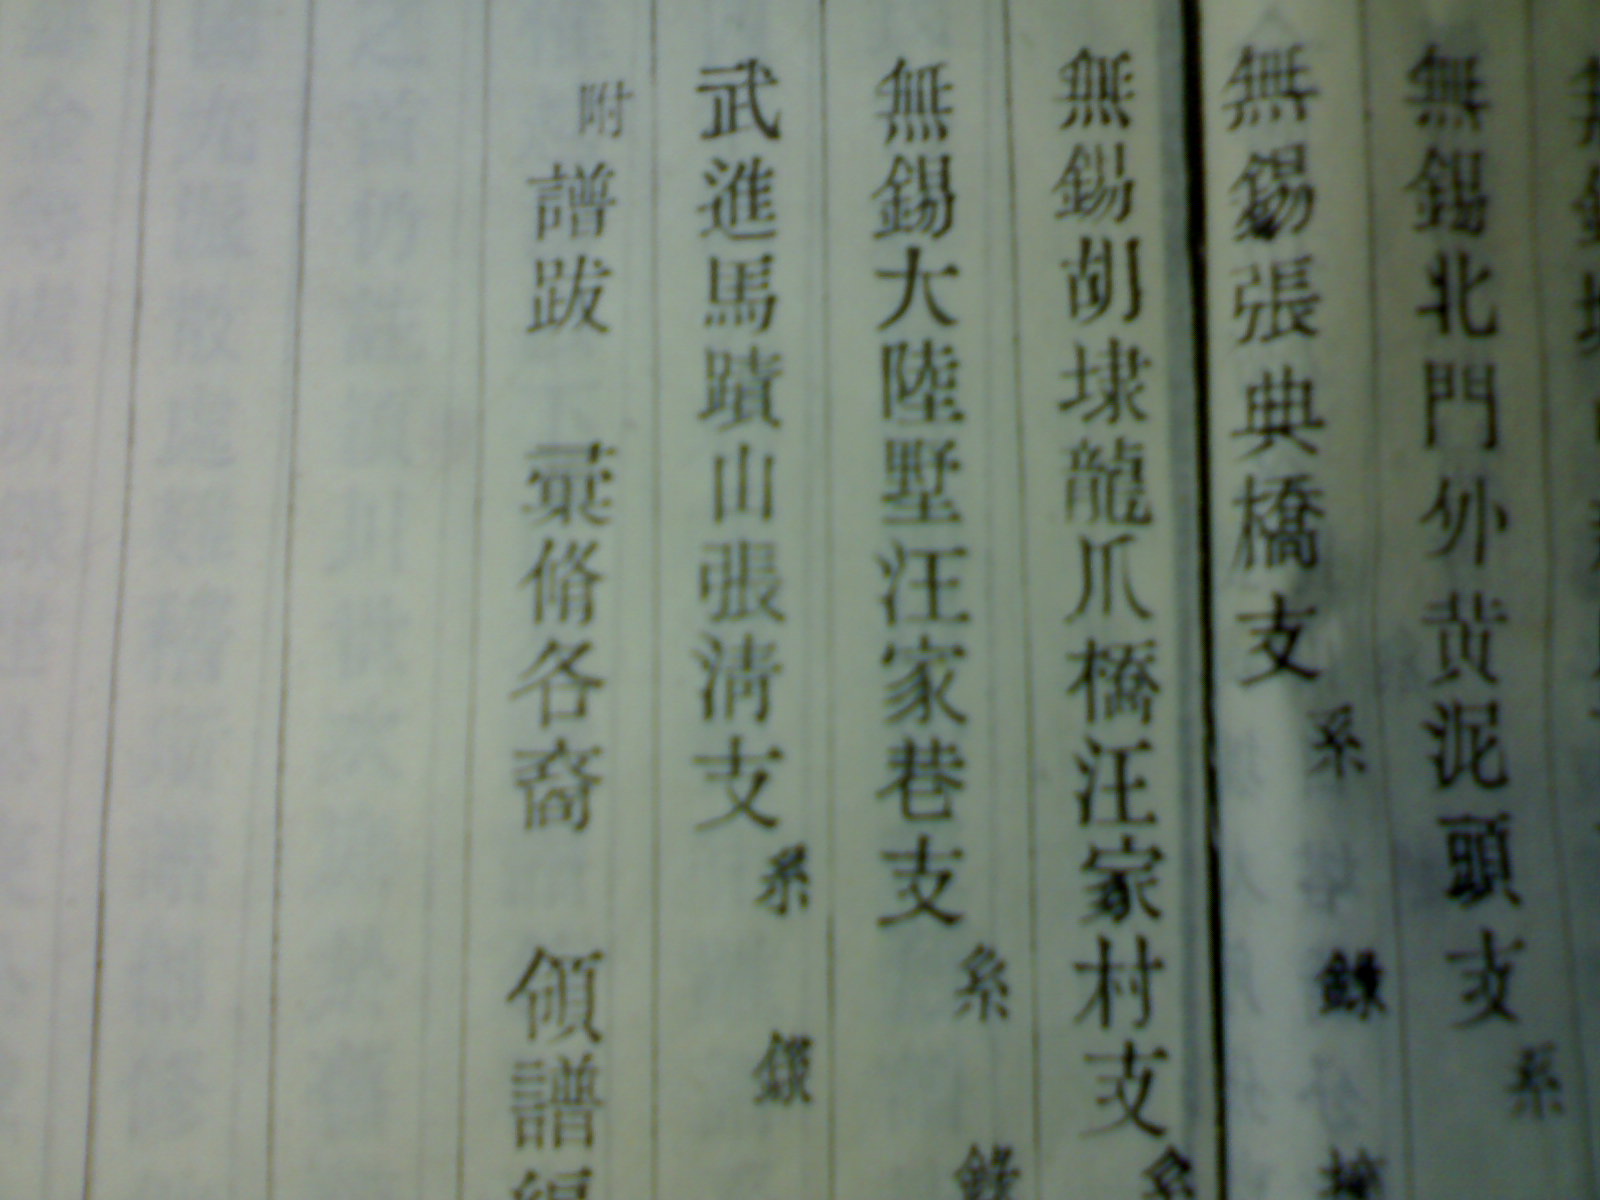 無錫北門外黄泥頭支 系
無錫張典橋支 系 錄
無錫胡埭龍爪橋汪家村支 系
無錫大陸墅汪家巷支 系 錄
武進馬蹟山張清支 系 錄
附譜跋 彙脩各裔 領譜